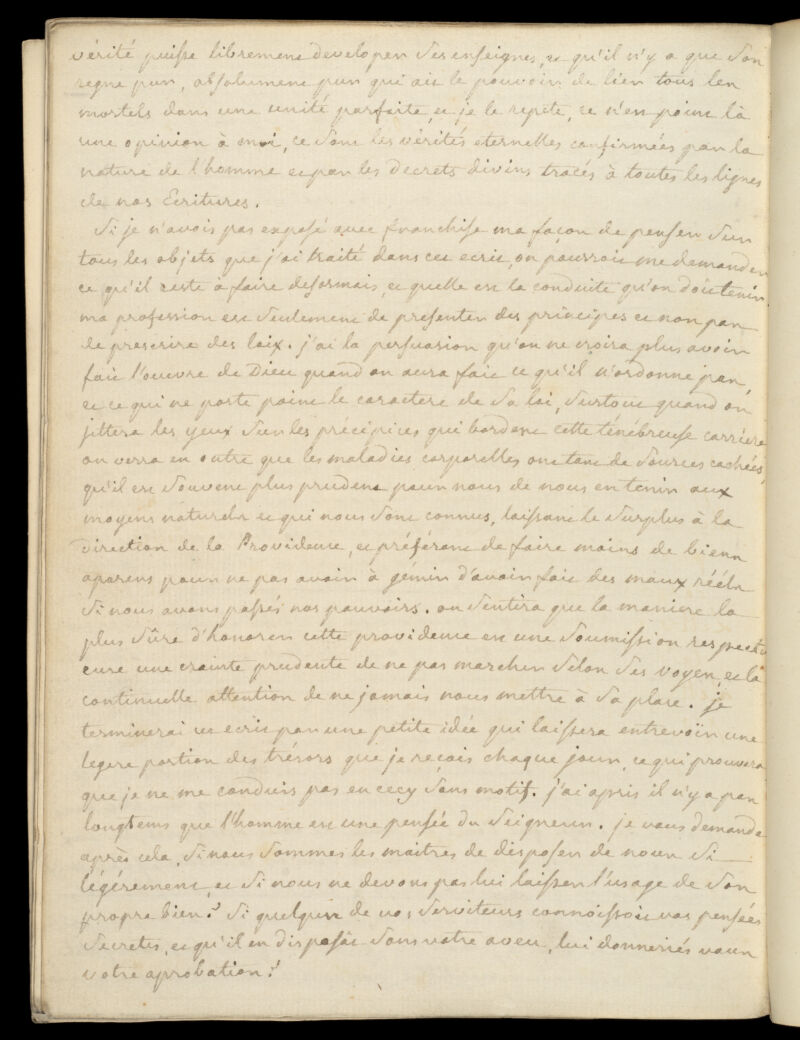 vérité puisse librement developer ses enseignes, et qu'il n'y a que son
regne pur, absolument pur qui ait le pouvoir de lier tous les
mortels dans une unité parfaite, et je le repete, ce n'est point là
une opinion à moi, ce sont les vérités eternelles confirmées par la
nature de l'homme et par les Decrets divins tracés à toutes les lignes
de nos Ecritures.
Si je n'avois pas exposé avec franchise ma façon de penser sur
tous les objets que j'ai traité dans cet ecrit, on pourroit me demander
ce qu'il reste à faire desormais, et quelle est la conduite qu'on doit tenir.
ma profession est seulement de presenter des principes et non pas
de prescrire des loix. j'ai la persuasion qu'on ne croira plus avoir
fait l'oeuvre de Dieu quand on aura fait ce qu'il n'ordonne pas,
et ce qui ne porte point le caractere de sa loi, surtout quand on
jettera les yeux sur les précipices qui bordent cette ténébreuse carriere
on verra en outre que les maladies corporelles ont tant de sources cachées,
qu'il est souvent plus prudent pour nous de nous en tenir aux
moyens naturels et qui nous sont connus, laissant le surplus à la
direction de la Providence, et préférant de faire moins de biens
aparens pour ne pas avoir à gémir d'avoir fait des maux réels
si nous avons passés nos pouvoirs. on sentira que la maniere la
plus sûre d'honorer cette providence est une soumission respectu
euse une crainte prudente de ne pas marcher selon ses voyes, et la
continuelle attention de ne jamais nous mettre à sa place. je
terminerai cet ecrit par une petite idée qui laissera entrevoir une
legere portion des trésors que je reçois chaque jour, ce qui prouvera
que je ne me conduis pas en cecy sans motif. j'ai apris il n'y a pas
longtems que l'homme est une pensée du Seigneur. je vous demande
après cela, si nous sommes les maitres de disposer de nous si
légérement, et si nous ne devons pas lui laisser l'usage de son
propre bien? si quelqu'un de vos serviteurs connoissoit vos pensées
secretes, et qu'il en disposât sans votre aveu, lui donneriés vous
votre aprobation?